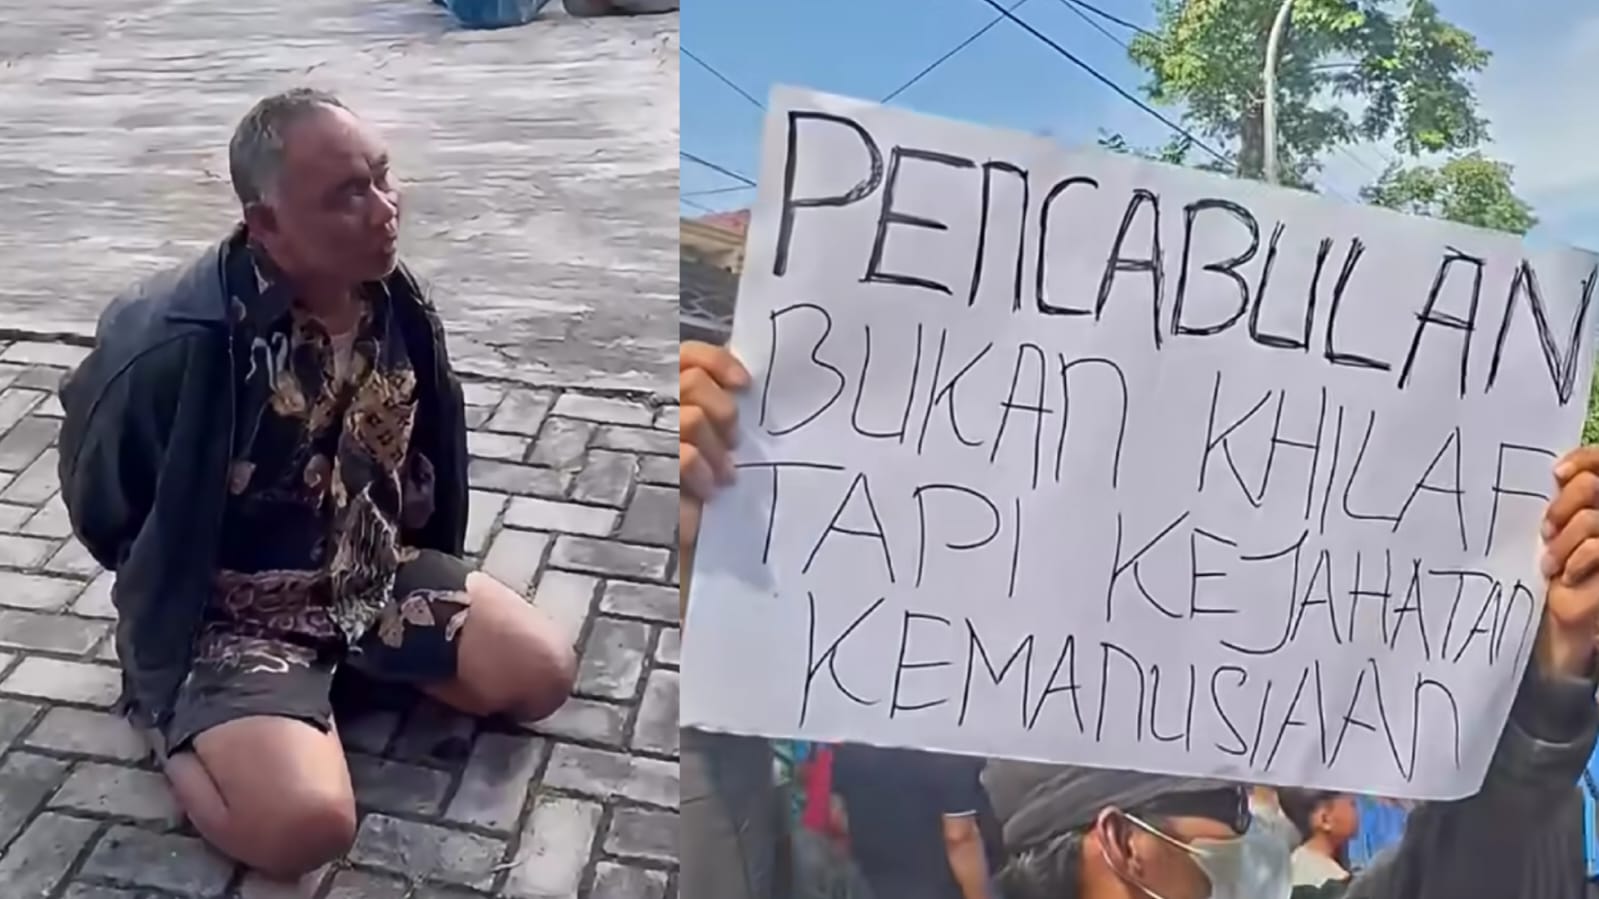 PENCABULAN
BUKAN KHILAF
TAPI KEJAHATAN
KEMANUSIAAN